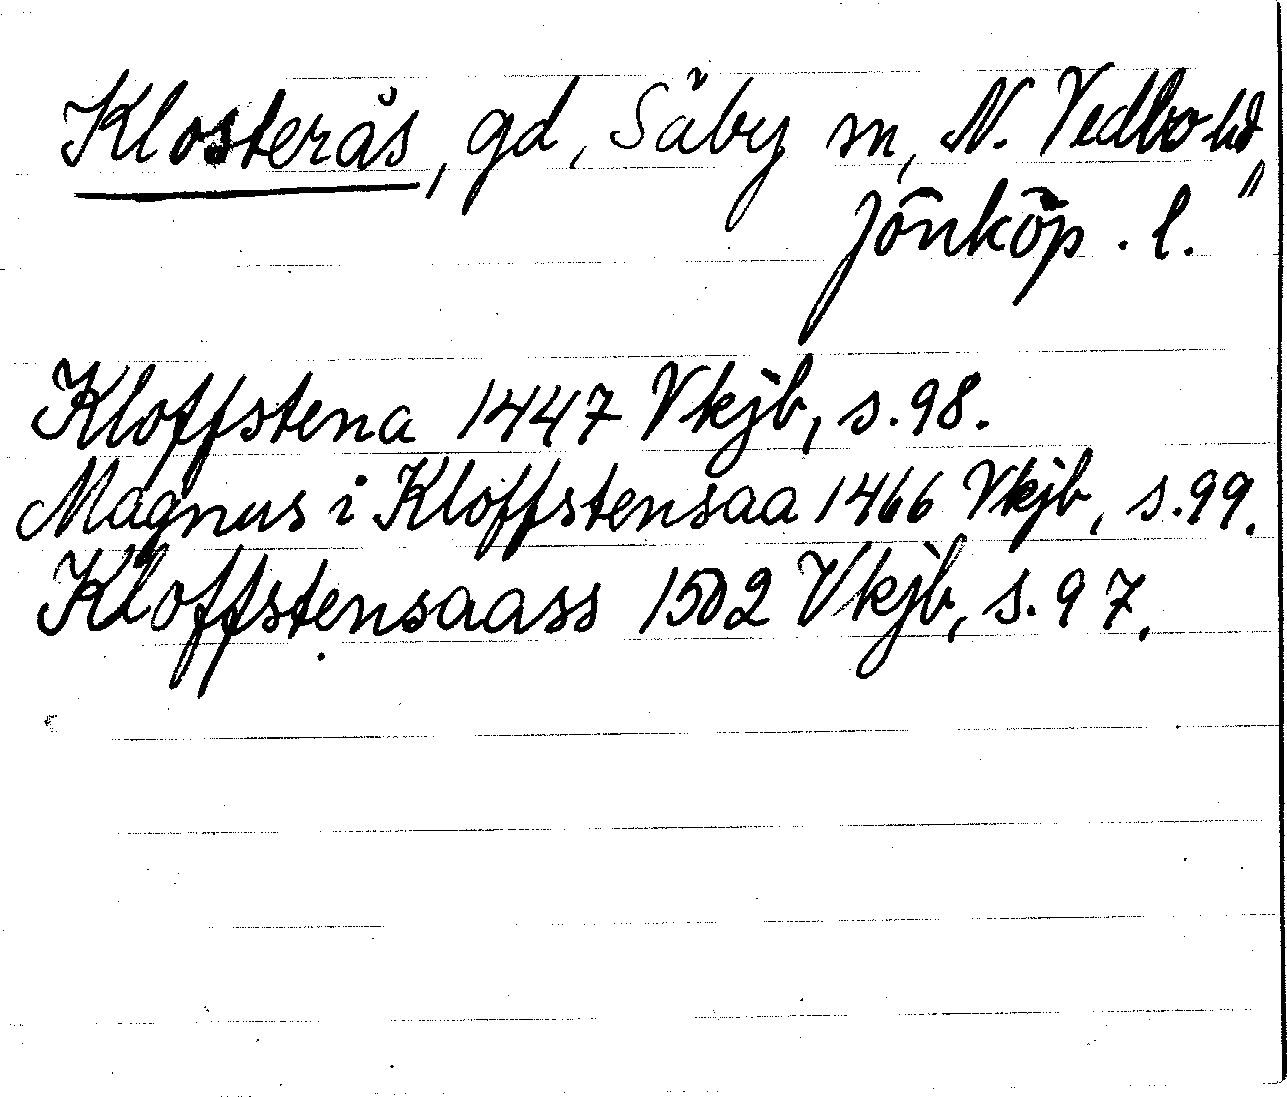 Klosterås, gd, Säby sn, N. Vedbo hd,
Jönköp. l.
Kloffstena 1447 Vkjb, s. 98.
Magnus i Kloffstensaa 1466 Vkjb, s. 99.
Kloffstensaass 1502 Vkjb, s. 97.